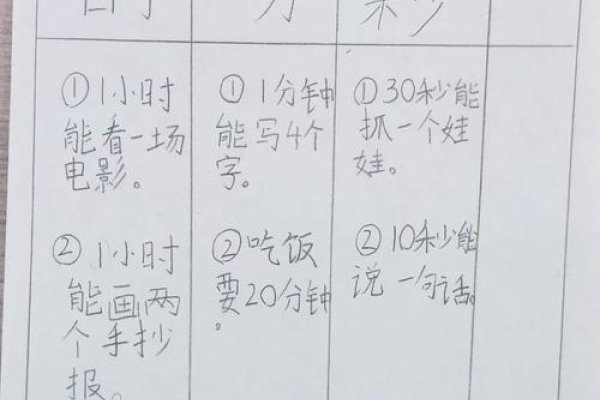 分
秒
①1小时
能看一场
电影。
②1小时
能画两
个手抄
报。
①1分钟
能写4个
字。
②吃饭
要20分钟
。
①30秒能
抓一个娃
娃。
②10秒能
说一句话。